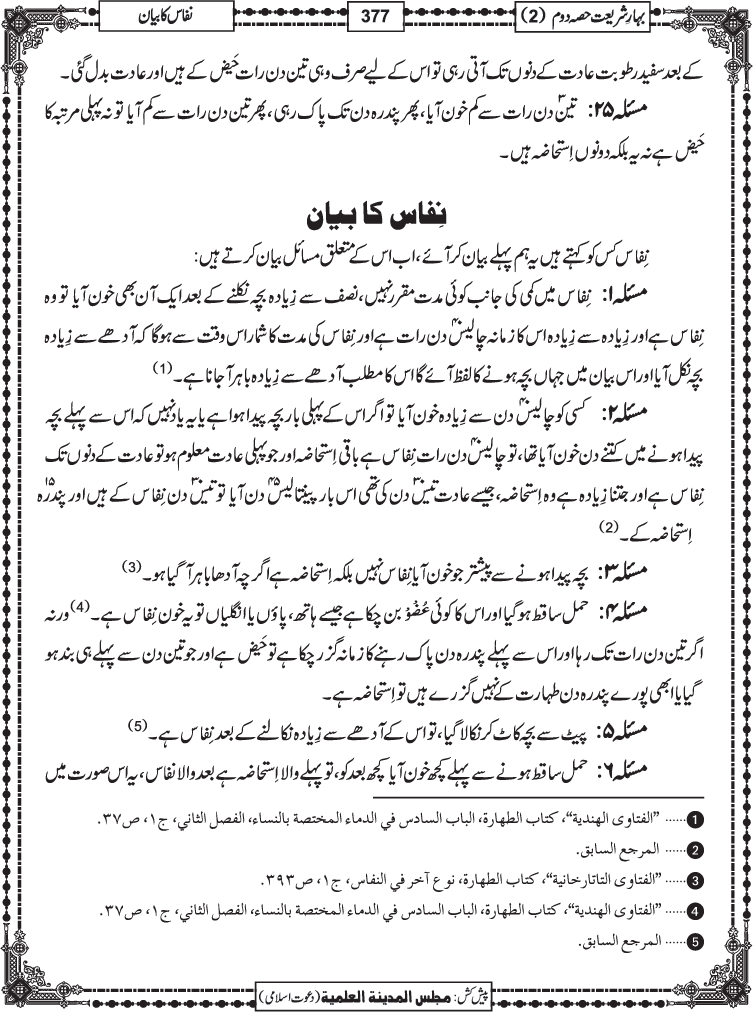 بہارِ شریعت حصہ دوم (2)
377
نفاس کا بیان
کے بعد سفید رطوبت عادت کے دنوں تک آتی رہی تو اس کے لیے صرف وہی تین دن رات حَیض کے ہیں اور عادت بدل گئی۔
مسئلہ ۲۵: تین۳ دن رات سے کم خون آیا، پھر پندرہ دن تک پاک رہی، پھر تین دن رات سے کم آیا تو نہ پہلی مرتبہ کا
حَیض ہے نہ یہ بلکہ دونوں اِستحاضہ ہیں۔
نِفاس کا بیان
نِفاس کس کو کہتے ہیں یہ ہم پہلے بیان کر آئے، اب اس کے متعلق مسائل بیان کرتے ہیں:
مسئلہ ۱: نِفاس میں کمی کی جانب کوئی مدت مقرر نہیں، نصف سے زِیادہ بچہ نکلنے کے بعد ایک آن بھی خون آیا تو وہ
نِفاس ہے اور زِیادہ سے زِیادہ اس کا زمانہ چالیس۴۰ دن رات ہے اور نِفاس کی مدت کا شمار اس وقت سے ہوگا کہ آدھے سے زِیادہ
بچہ نکل آیا اور اس بیان میں جہاں بچہ ہونے کا لفظ آئے گا اس کا مطلب آدھے سے زِیادہ باہر آجانا ہے۔ (1)
مسئلہ ۲: کسی کو چالیس۴۰ دن سے زِیادہ خون آیا تو اگر اس کے پہلی بار بچہ پیدا ہوا ہے یا یہ یاد نہیں کہ اس سے پہلے بچہ
پیدا ہونے میں کتنے دن خون آیا تھا، تو چالیس۴۰ دن رات نِفاس ہے باقی اِستحاضہ اور جو پہلی عادت معلوم ہو تو عادت کے دنوں تک
نِفاس ہے اور جتنا زِیادہ ہے وہ اِستحاضہ، جیسے عادت تیس۳۰ دن کی تھی اس بار پینتالیس۴۵ دن آیا تو تیس۳۰ دن نِفاس کے ہیں اور پندرہ۱۵
اِستحاضہ کے۔ (2)
مسئلہ ۳: بچہ پیدا ہونے سے پیشتر جو خون آیا نِفاس نہیں بلکہ اِستحاضہ ہے اگرچہ آدھا باہر آگیا ہو۔ (3)
مسئلہ ۴: حمل ساقط ہو گیا اور اس کا کوئی عُضْوْ بن چکا ہے جیسے ہاتھ، پاؤں یا انگلیاں تو یہ خون نِفاس ہے۔ (4) ورنہ
اگر تین دن رات تک رہا اور اس سے پہلے پندرہ دن پاک رہنے کا زمانہ گزر چکا ہے تو حَیض ہے اور جو تین دن سے پہلے ہی بند ہو
گیا یا ابھی پورے پندرہ دن طہارت کے نہیں گزرے ہیں تو اِستحاضہ ہے۔
مسئلہ ۵: پیٹ سے بچہ کاٹ کر نکالا گیا، تو اس کے آدھے سے زِیادہ نکالنے کے بعد نِفاس ہے۔ (5)
مسئلہ ۶: حمل ساقط ہونے سے پہلے کچھ خون آیا کچھ بعد کو، تو پہلے والا اِستحاضہ ہے بعد والا نفاس، یہ اس صورت میں
1 ...... ”الفتاوی الهندیة“، کتاب الطهارة، الباب السادس في الدماء المختصة بالنساء، الفصل الثاني، ج۱، ص۳۷.
2 ...... المرجع السابق.
3 ...... ”الفتاوی التاتارخانیة“، کتاب الطهارة، نوع آخر في النفاس، ج۱، ص۳۹۳.
4 ...... ”الفتاوی الهندیة“، کتاب الطهارة، الباب السادس في الدماء المختصة بالنساء، الفصل الثاني، ج۱، ص۳۷.
5 ...... المرجع السابق.
پیش کش: مجلس المدینة العلمیة (دعوتِ اسلامی)